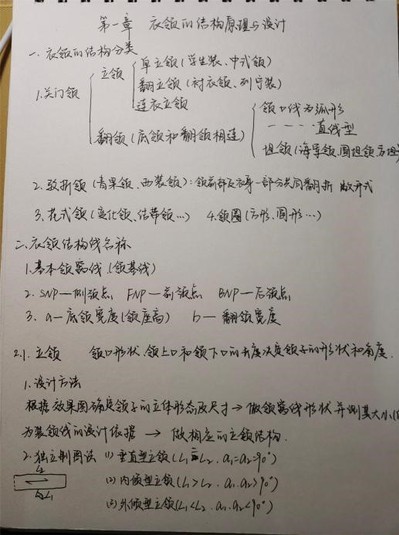 第一章 衣领的结构原理与设计
一、衣领的结构分类
1.关门领 立领 单立领（学生装、中式领）
翻立领（衬衣领、列宁装）
连衣立领
翻领（底领和翻领相连） 领口线为弧形
---- 直线型
坦领（海军领、圆坦领、方坦
2.驳折领（青果领、西装领）：领前部及衣身一部分共同翻折 敞开式
3.花式领（变化领、结带领…） 4.领圈（方形、圆形…）
二、衣领结构线名称
1.基本领窝线（领基线）
2. SNP—侧颈点 FNP—前颈点 BNP—后颈点
3. a—底领宽度（领座高） b—翻领宽度
2.1. 立领 领口形状、领上口和领下口的长度决定领子的形状和角度.
1.设计方法
根据效果图确定领子的立体形态及尺寸→做领窝线形状并测其大小（
为装领线的设计依据 → 做相应的立领结构.
2.独立制图法 (1) 垂直型立领(L₁=L₂ a₁=a₂=90°)
(2) 内倾型立领(L₁>L₂ . a₁.a₂>90°)
(3) 外倾型立领(L₁<L₂ . a₁.a₂<90°)